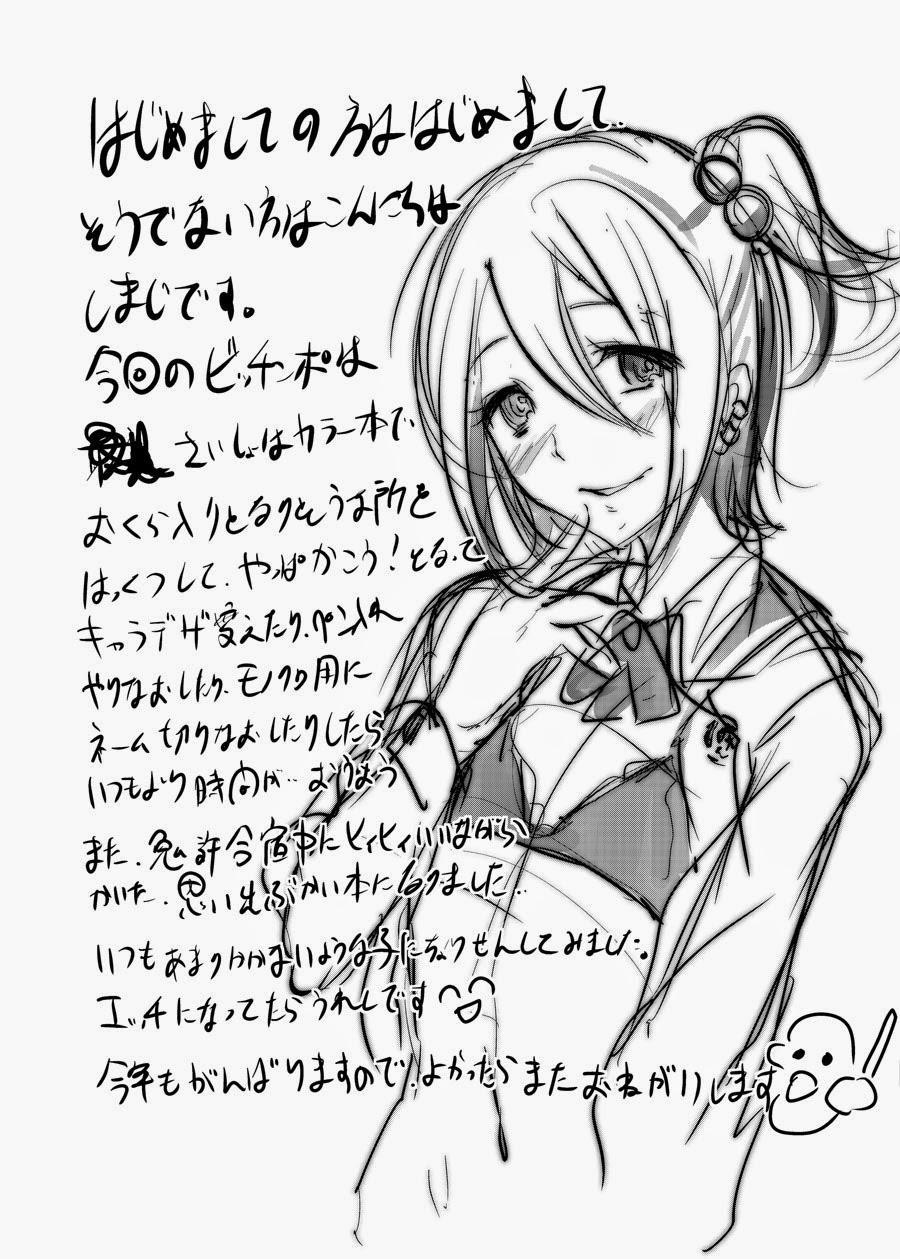 はじめましての方ははじめまして.
そうでない方はこんにちは
しまじです。
今回のビッチンポは
さいしょはカラー本で
おくら入りとなりそうな所を
はっくつして、やっぱかこう！となって
キャラデザ変えたり、ペン入れ
やりなおしたり、モノクロ用に
ネーム切りなおしたりしたら
いつもより時間が‥おりもう
また、免許合宿中にヒィヒィいいながら
かいた、思い出ぶかい本になりました..
いつもあまりかかないような子にちょうせんしてみました。
エッチになってたらうれしです
今年もがんばりますので、よかったらまたおねがいします